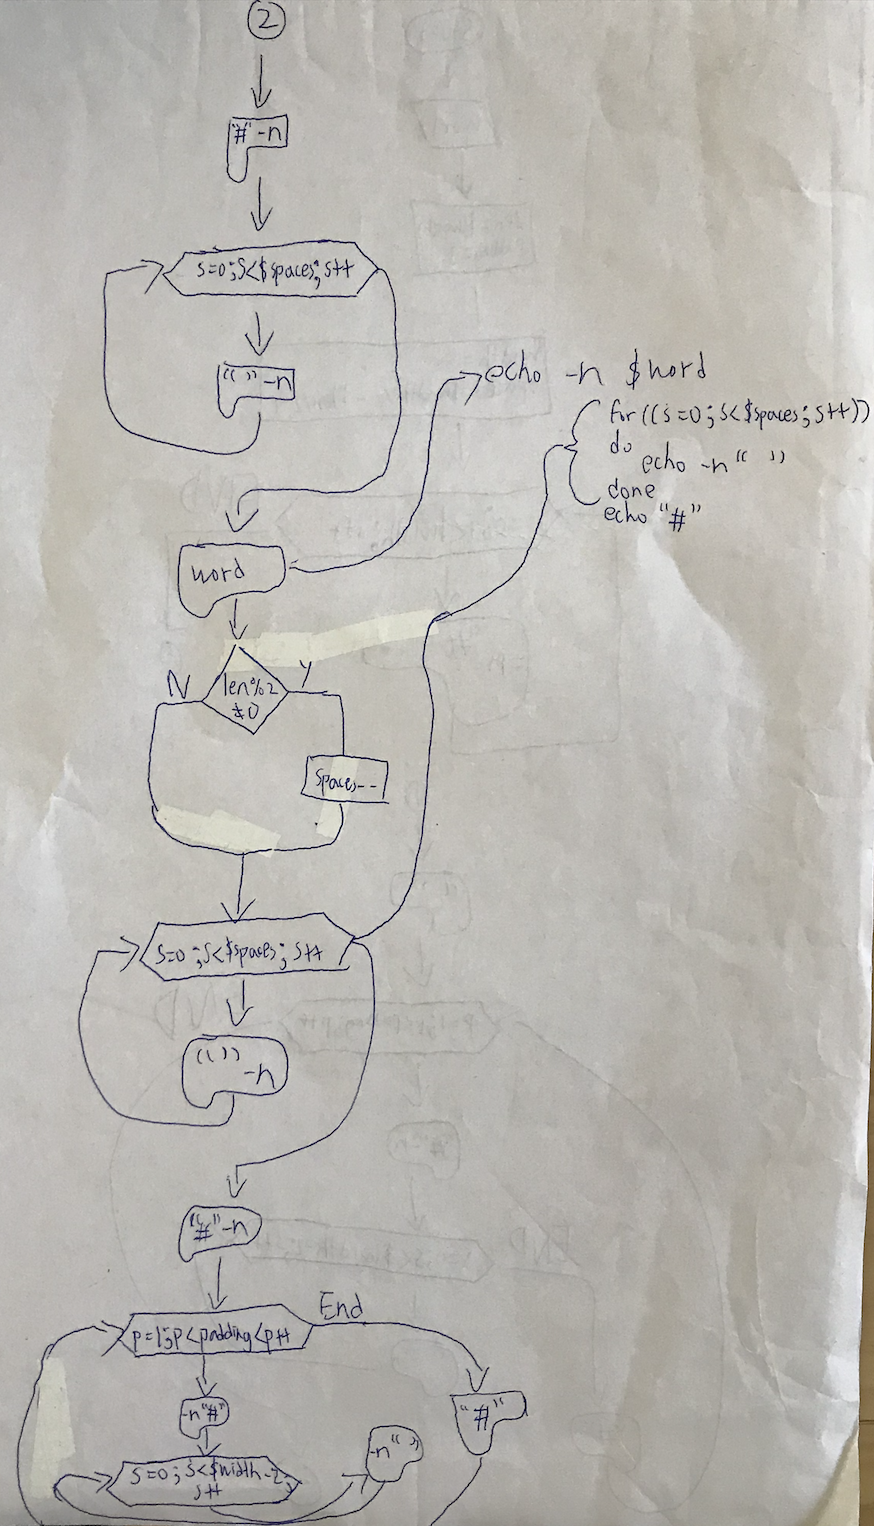 2
"#" -n
s=0 ; s<$spaces ; s++
" " -n
echo -n $word
for ((s=0 ; s<$spaces ; s++))
do
echo -n " "
done
echo "#"
word
N
Y
len%2
≠0
spaces--
s=0 ; s<$spaces ; s++
" " -n
"#" -n
End
p=1;p<padding<p++
-n"#"
"#"
-n" "
s=0 ; s<$width-2;
s++